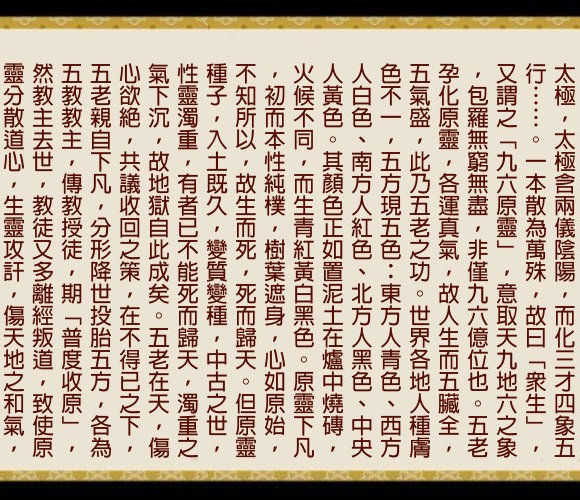 太極，太極含兩儀陰陽，而化三才四象五
行……。一本散為萬殊，故曰「衆生」，
又謂之「九六原靈」，意取天九地六之象
，包羅無窮無盡，非僅九六億位也。五老
孕化原靈，各運真氣，故人生而五臟全，
五氣盛，此乃五老之功。世界各地人種膚
色不一，五方現五色：東方人青色、西方
人白色、南方人紅色、北方人黑色、中央
人黃色。其顏色正如置泥土在爐中燒磚，
火候不同，而生青紅黃白黑色。原靈下凡
，初而本性純樸，樹葉遮身，心如原始，
不知所以，故生而死，死而歸天。但原靈
種子，入土既久，變質變種，中古之世，
性靈濁重，有者已不能死而歸天，濁重之
氣下沉，故地獄自此成矣。五老在天，傷
心欲絕，共議收回之策，在不得已之下，
五老親自下凡，分形降世投胎五方，各為
五教教主，傳教授徒，期「普度收原」，
然教主去世，教徒又多離經叛道，致使原
靈分散道心，生靈攻訐，傷天地之和氣，